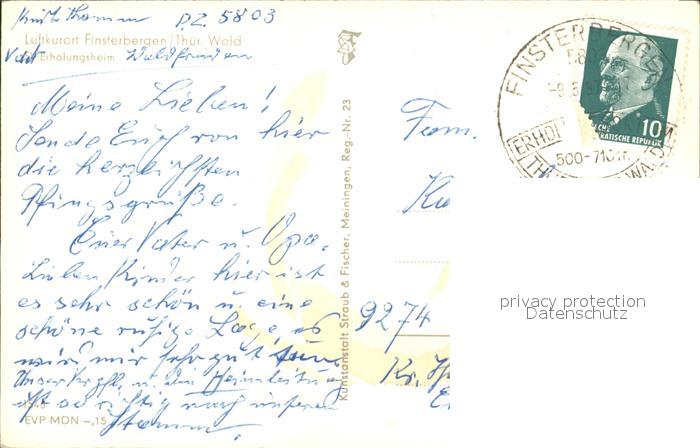 Kurt Thomm PZ. 5803
Luftkurort Finsterbergen/Thür. Wald
Erholungsheim Waldfrieden
Meine Lieben!
Sende Euch von hier
die herzlichsten
Pfingsgrüße.
Euer Vater u. Opa.
Lieben Kinder hier ist
es sehr schön u. eine
schöne ruhige Lage, es
wird mir sehr gut tun,
u. die Heimleitung
ist so richtig nach unseren
EVP MDN -,15
Kunstanstalt Straub & Fischer, Meiningen, Reg.-Nr. 23
Fam.
9274
FINSTERBERGEN
58
ERHOL
500-710 m.
10
CHE
RATISCHE REPUBLIK
privacy protection
Datenschutz